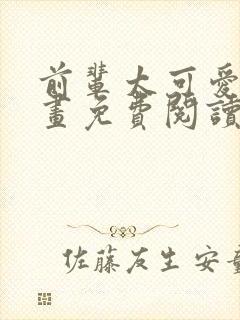 前輩太可愛
畫免費閱讀
佐藤友生 安